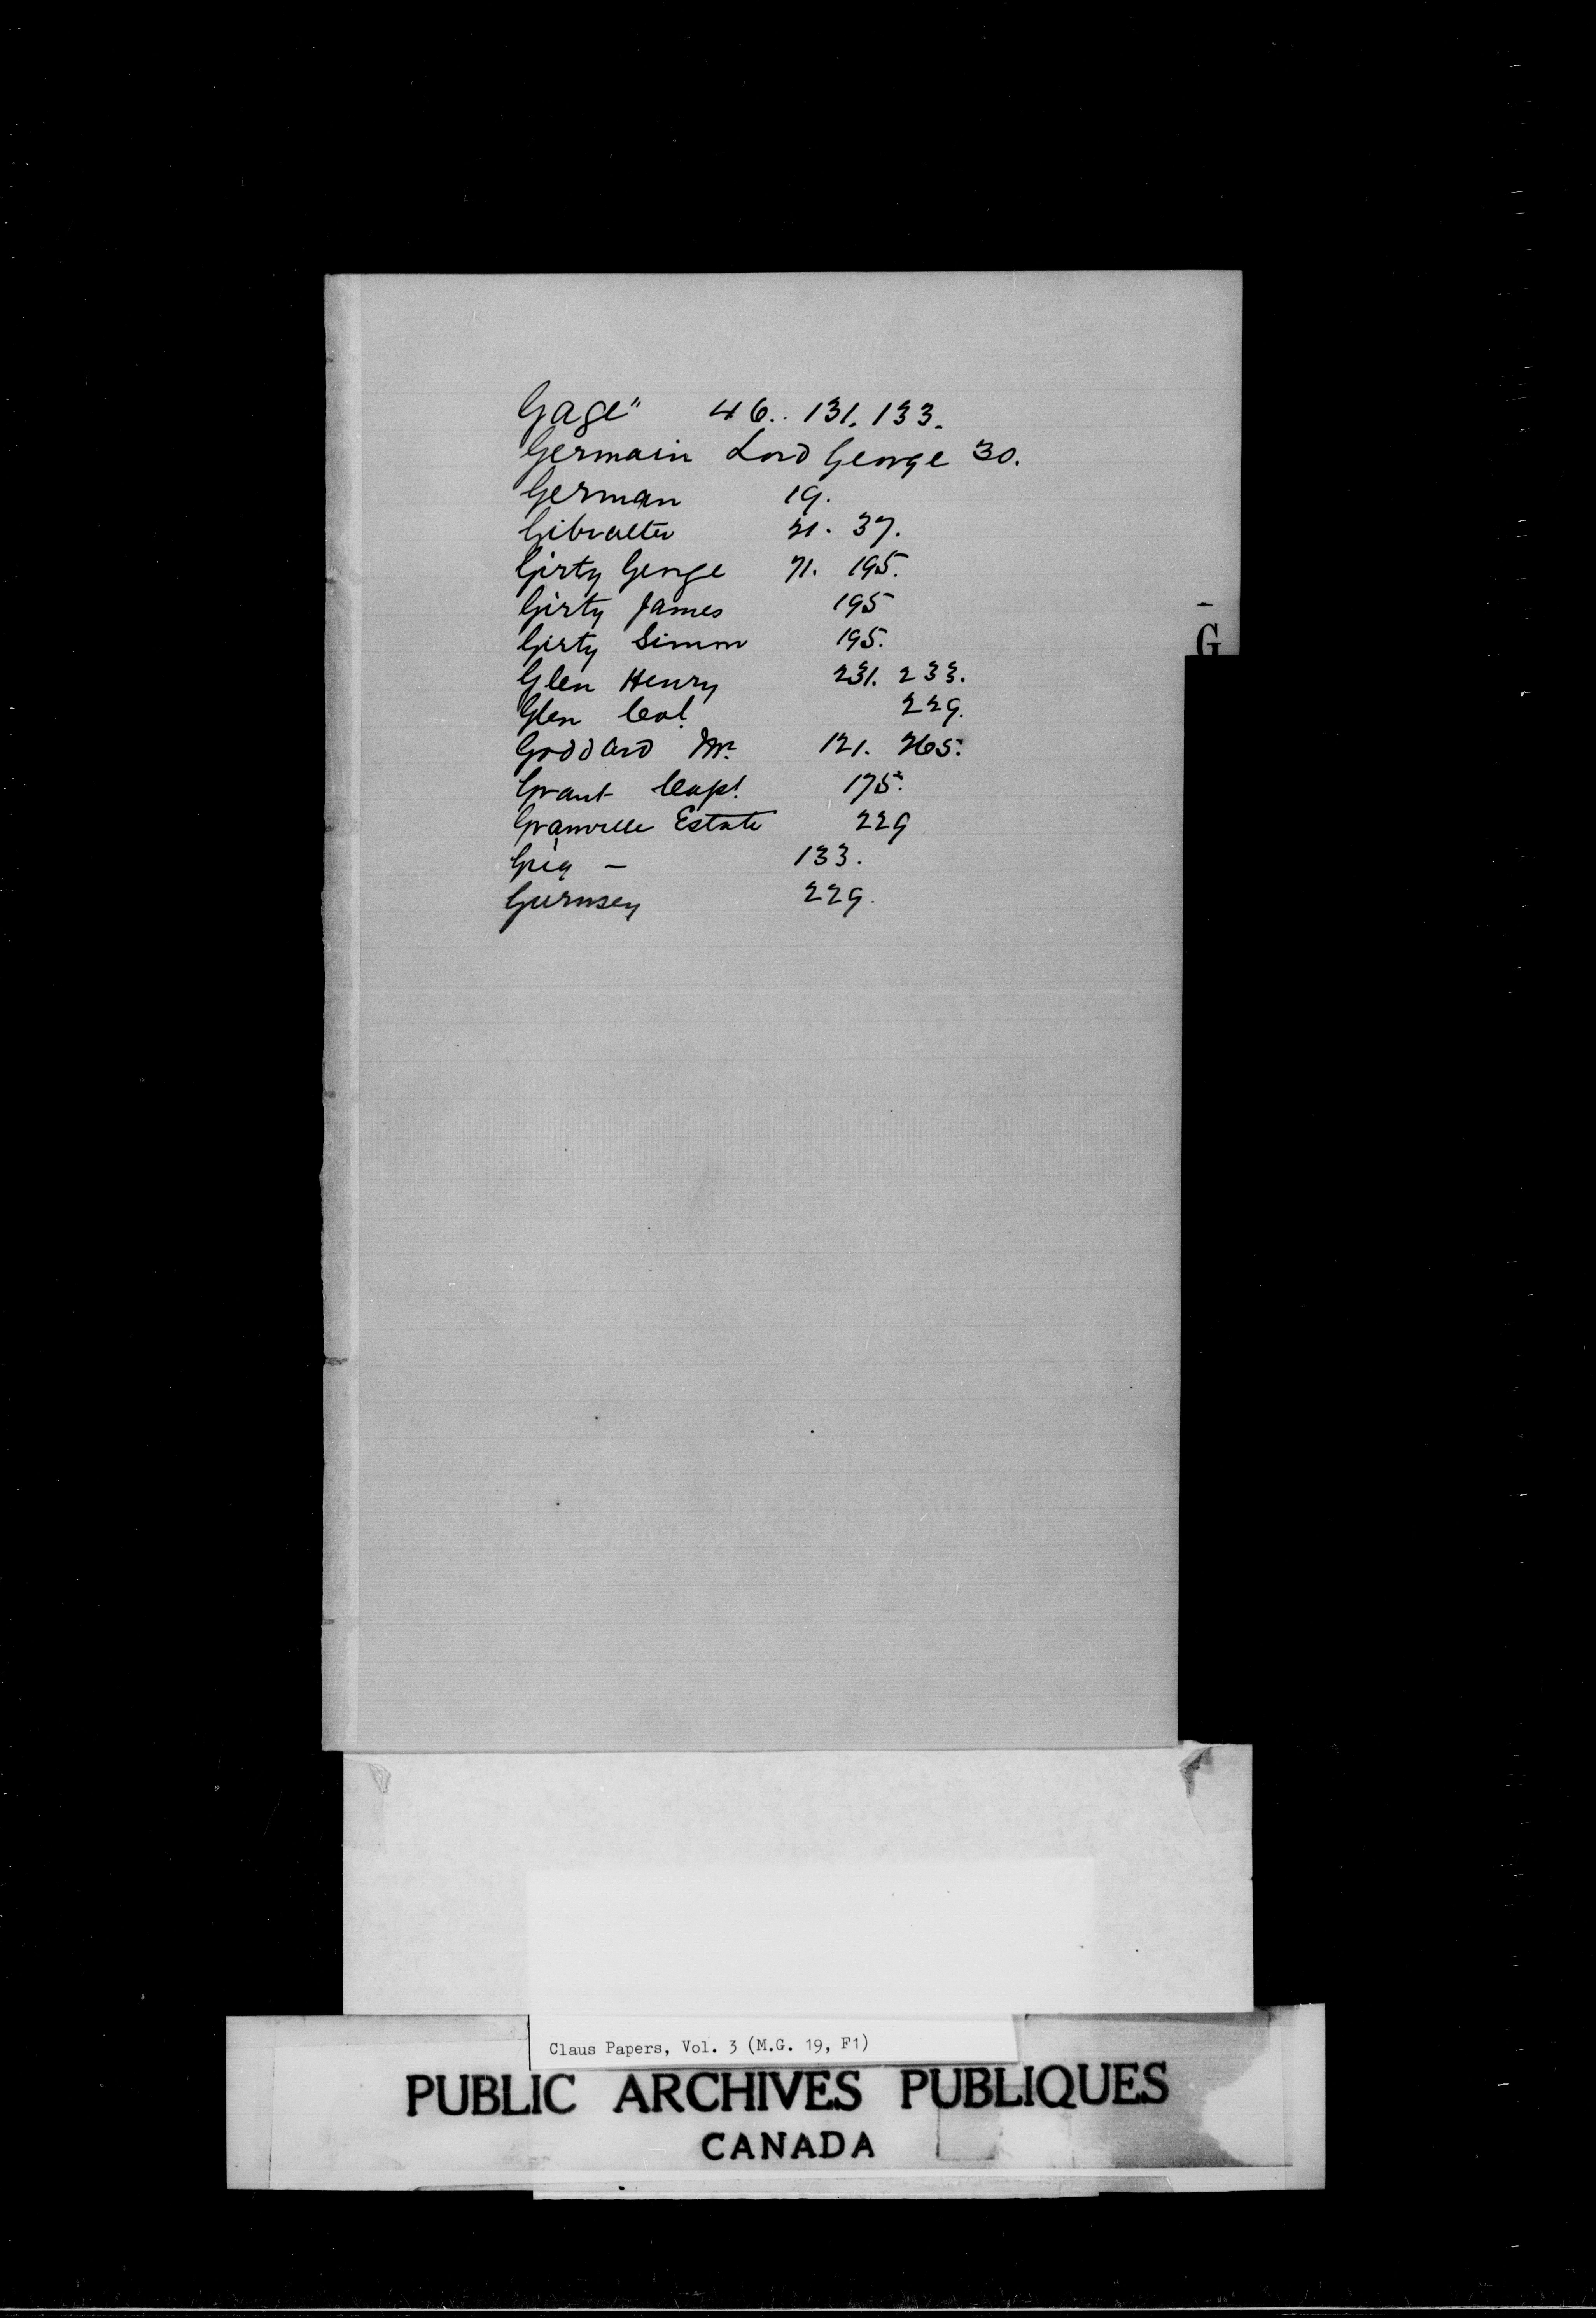 Gage" 46.. 131. 133.
Germain Lord George 30.
German 19.
Gibralter 21. 37.
Girty George 71. 195.
Girty James 195
Girty Simon 195.
G
Glen Henry 231. 233.
Glen Col. 229.
Goddard Mr. 121. 265.
Grant Capt. 175.
Granville Estate 229
133.
Gurnsey 229.
Claus Papers, Vol. 3 (M.G. 19, F1)
PUBLIC ARCHIVES PUBLIQUES
CANADA